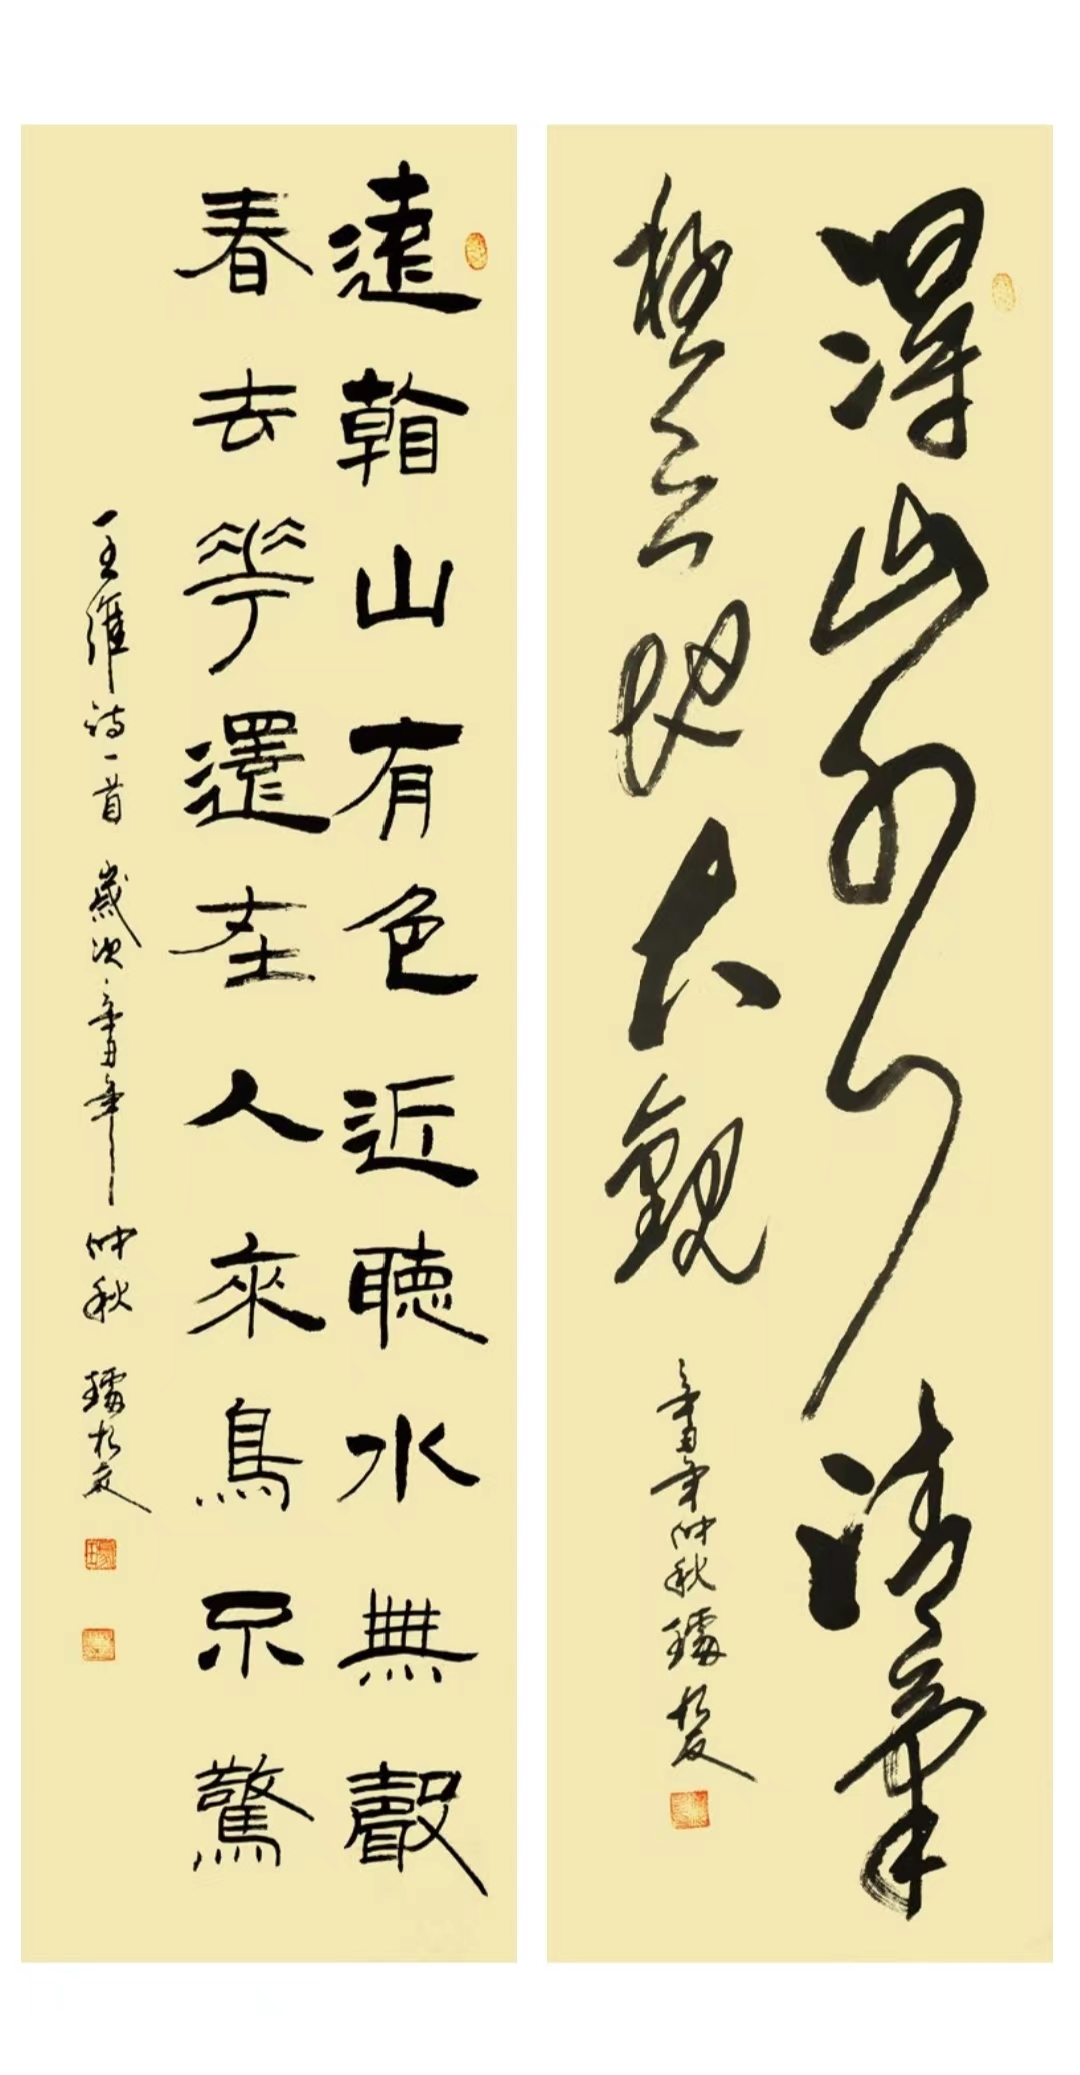 得山水清氣
極天地大觀
辛丑年仲秋
遠看山有色近聽水無聲
春去花還在人來鳥不驚
王維詩一首 歲次辛丑年 仲秋